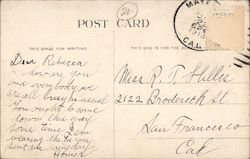 POST CARD
THIS SPACE FOR WRITING
THIS SIDE IS FOR THE
CAL
Dear Rebecca
how are you
and everybody we
are all busy as usual
You ought to come
down this way
some time I am
wearing the tie you
sent me every day
Homer
Miss R. T. Hillis
2122 Broderick St
San Francisco
Cal